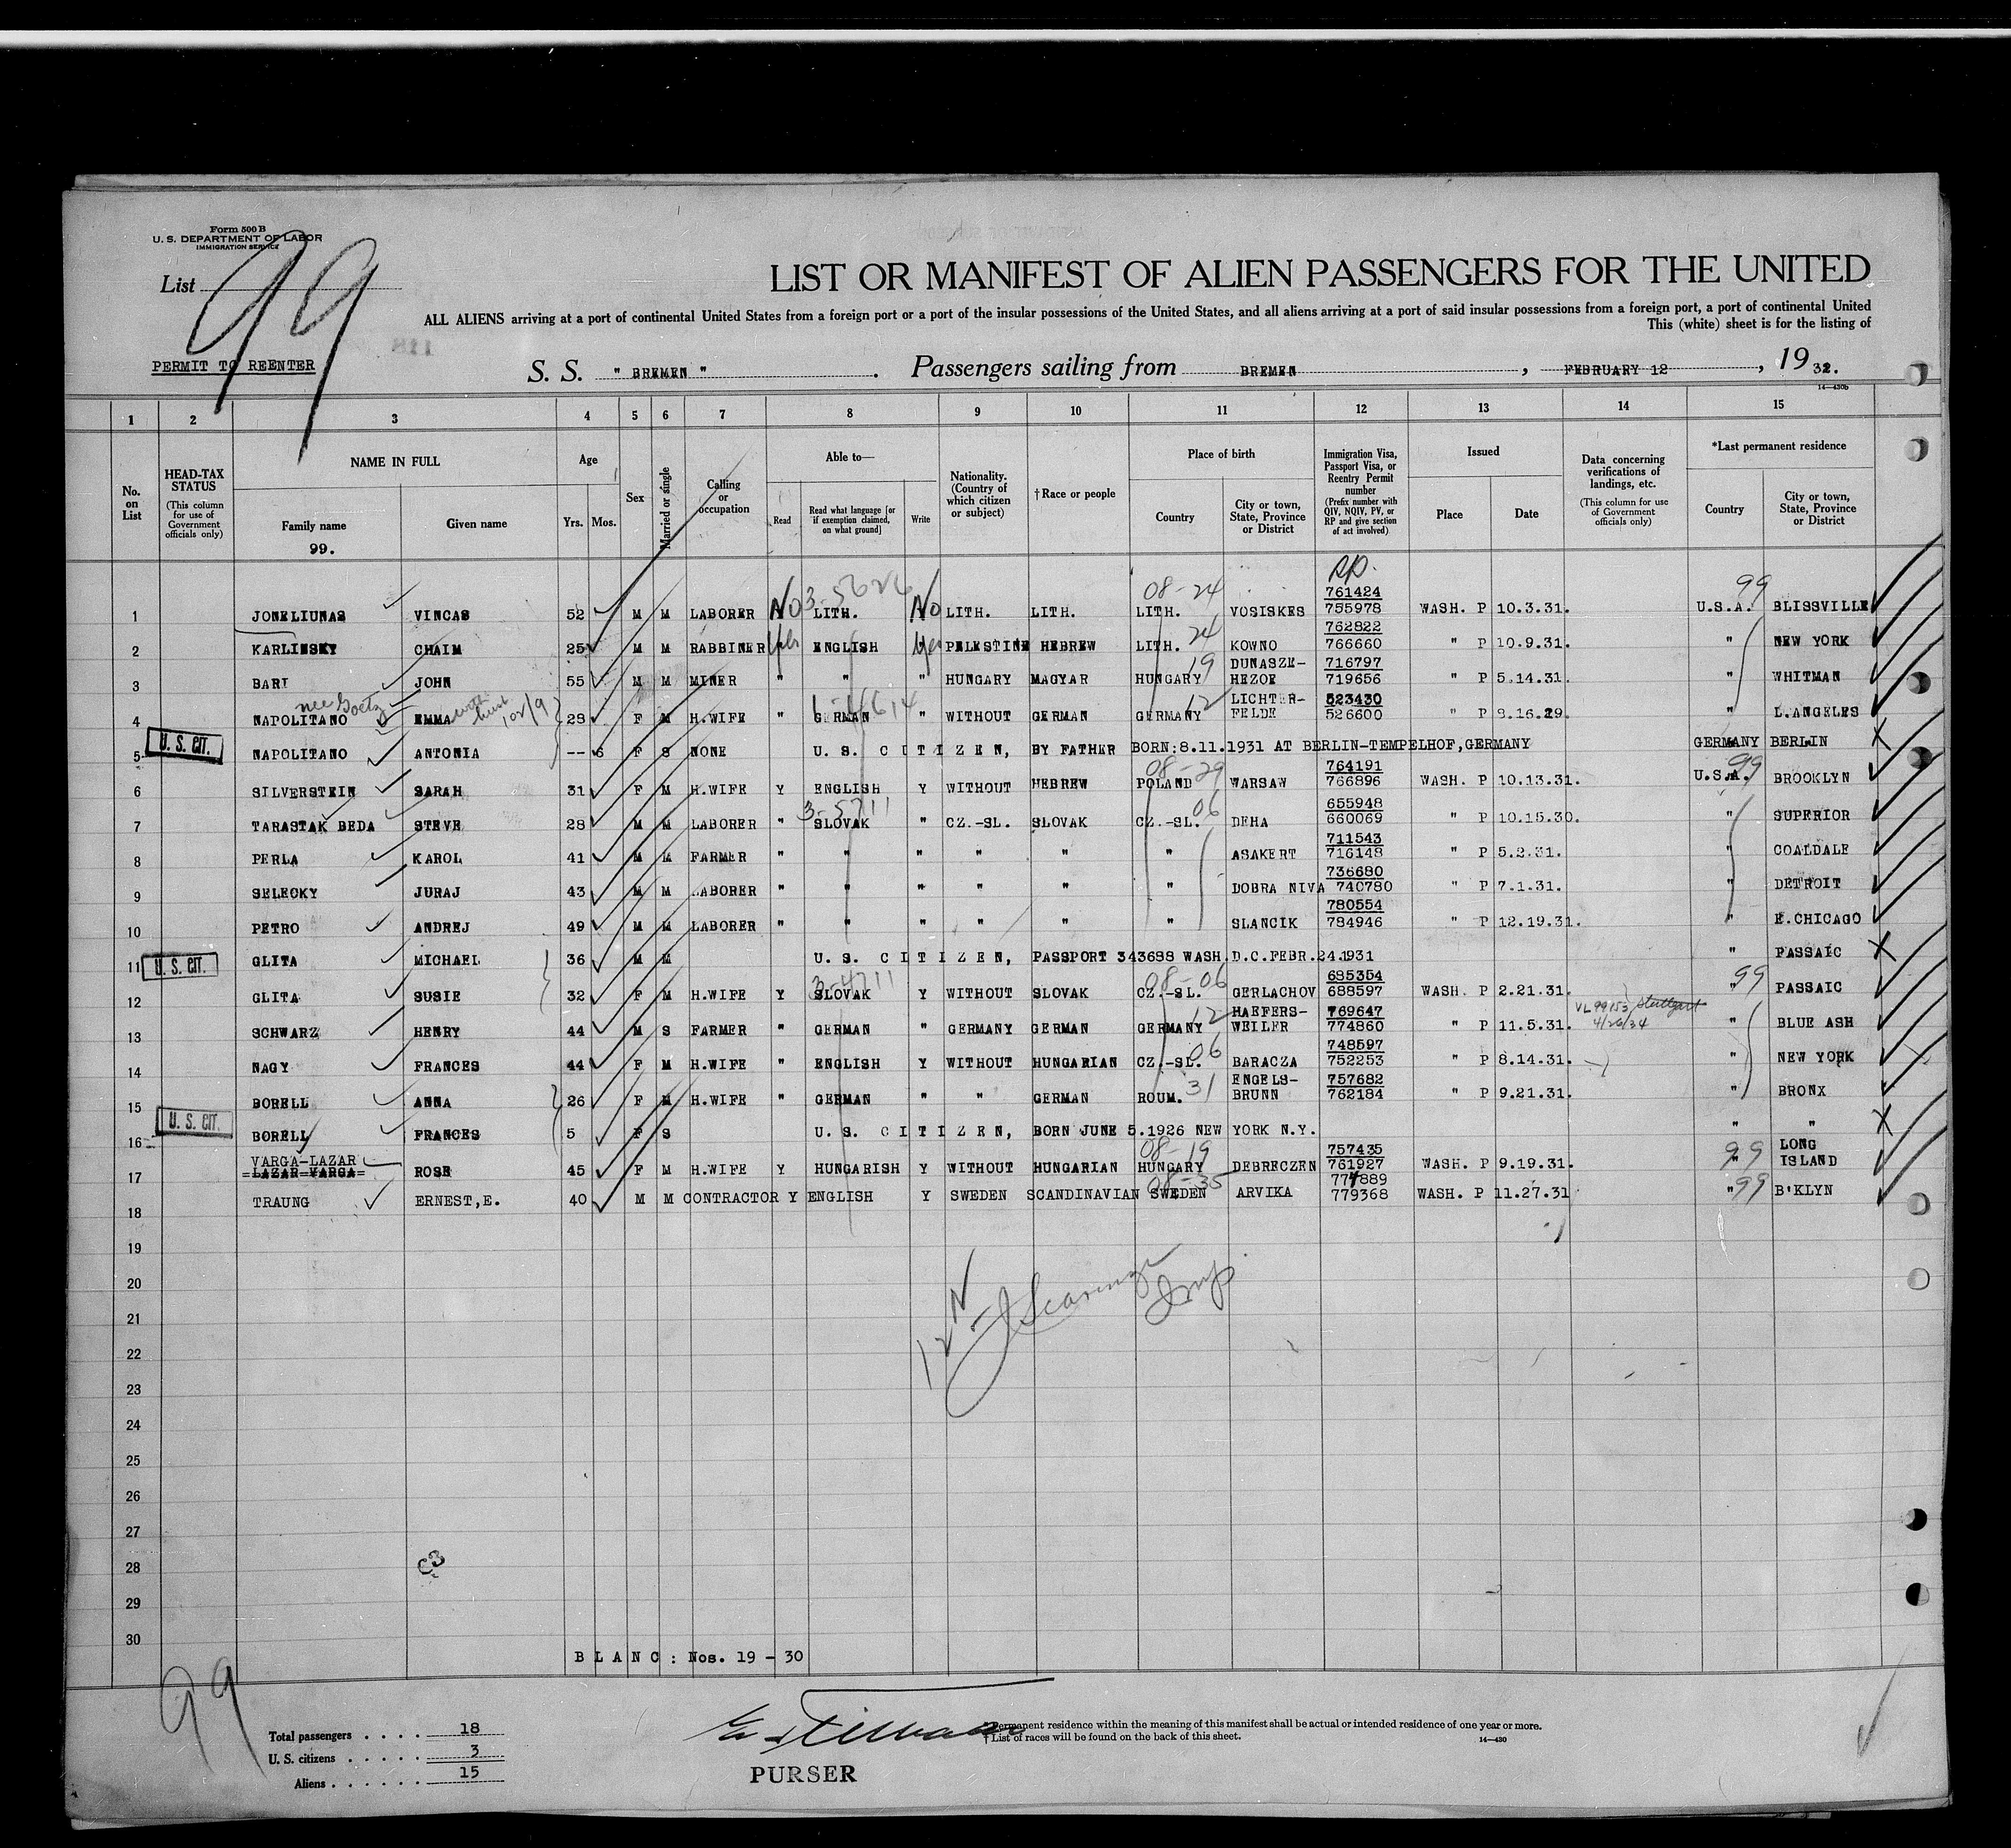 Form 500 B
U. S. DEPARTMENT OF LABOR
IMMIGRATION SERVICE
List 99
LIST OR MANIFEST OF ALIEN PASSENGERS FOR THE UNITED
ALL ALIENS arriving at a port of continental United States from a foreign port or a port of the insular possessions of the United States, and all aliens arriving at a port of said insular possessions from a foreign port, a port of continental United
This (white) sheet is for the listing of
118
PERMIT TO REENTER
S. S. " BREMEN ". Passengers sailing from BREMEN, FEBRUARY 12, 1932.
14—430b
1 2 3 4 5 6 7 8 9 10 11 12 13 14 15
No. on List
HEAD-TAX STATUS
(This column for use of Government officials only)
NAME IN FULL
Family name
99.
Given name
Age
Yrs. Mos.
Sex
Married or single
Calling or occupation
Able to—
Read
Read what language [or if exemption claimed, on what ground]
Write
Nationality. (Country of which citizen or subject)
† Race or people
Place of birth
Country
City or town, State, Province or District
Immigration Visa, Passport Visa, or Reentry Permit number
(Prefix number with QIV, NQIV, PV, or RP and give section of act involved)
Issued
Place
Date
Data concerning verifications of landings, etc.
(This column for use of Government officials only)
*Last permanent residence
Country
City or town, State, Province or District
RP.
3-5626 08-24 761424 99
1 JONELIUNAS VINCAS 52 M M LABORER No LITH. No LITH. LITH. LITH. VOSISKES 755978 WASH. P 10.3.31. U.S.A. BLISSVILLE
24 762822
2 KARLINSKY CHAIM 25 M M RABBINER yes ENGLISH yes PELESTINE HEBREW LITH. KOWNO 766660 " P 10.9.31. NEW YORK
19 DUNASZE- 716797
3 BARI JOHN 55 M M MINER " " " HUNGARY MAGYAR HUNGARY HEZOE 719656 " P 5.14.31. " WHITMAN
nee Goetz with husb 102/9 1-4614 12 LICHTER- 523430
4 NAPOLITANO EMMA 28 F M H.WIFE " GERMAN " WITHOUT GERMAN GERMANY FELDE 526600 " P 9.16.29. " L.ANGELES
U. S. CIT.
5 NAPOLITANO ANTONIA -- 6 F S NONE U. S. CITIZEN, BY FATHER BORN:8.11.1931 AT BERLIN-TEMPELHOF,GERMANY GERMANY BERLIN
08-29 764191 99
6 SILVERSTEIN SARAH 31 F M H.WIFE Y ENGLISH Y WITHOUT HEBREW POLAND WARSAW 766896 WASH. P 10.13.31. U.S.A. BROOKLYN
3-5711 06 655948
7 TARASTAK BEDA STEVE 28 M M LABORER " SLOVAK " CZ.-SL. SLOVAK CZ.-SL. DEHA 660069 " P 10.15.30. " SUPERIOR
711543
8 PERLA KAROL 41 M M FARMER " " " " " " ASAKERT 716148 " P 5.2.31. " COALDALE
736680
9 SELECKY JURAJ 43 M M LABORER " " " " " " DOBRA NIVA 740780 " P 7.1.31. " DETROIT
780554
10 PETRO ANDREJ 49 M M LABORER " " " " " " SLANCIK 784946 " P 12.19.31. " E.CHICAGO
U. S. CIT.
11 GLITA MICHAEL 36 M M U. S. CITIZEN, PASSPORT 343688 WASH.D.C.FEBR.24.1931 " PASSAIC
3-4711 08-06 685354 99
12 GLITA SUSIE 32 F M H.WIFE Y SLOVAK Y WITHOUT SLOVAK CZ.-SL. GERLACHOV 688597 WASH. P 2.21.31. " PASSAIC
12 HAEFERS- 769647 VL 99153 Stuttgart
13 SCHWARZ HENRY 44 M S FARMER " GERMAN " GERMANY GERMAN GERMANY WEILER 774860 " P 11.5.31. 4/26/34 " BLUE ASH
06 748597
14 NAGY FRANCES 44 F M H.WIFE " ENGLISH Y WITHOUT HUNGARIAN CZ.-SL. BARACZA 752253 " P 8.14.31. " NEW YORK
31 ENGELS- 757682
15 BORELL ANNA 26 F M H.WIFE " GERMAN " " GERMAN ROUM. BRUNN 762184 " P 9.21.31. " BRONX
U. S. CIT.
16 BORELL FRANCES 5 F S U. S. CITIZEN, BORN JUNE 5.1926 NEW YORK N.Y. " "
VARGA-LAZAR 08-19 757435 99 LONG
17 =LAZAR=VARGA= ROSE 45 F M H.WIFE Y HUNGARISH Y WITHOUT HUNGARIAN HUNGARY DEBRECZEN 761927 WASH. P 9.19.31. " ISLAND
08-35 774889
18 TRAUNG ERNEST,E. 40 M M CONTRACTOR Y ENGLISH Y SWEDEN SCANDINAVIAN SWEDEN ARVIKA 779368 WASH. P 11.27.31 " 99 B'KLYN
19
20
21
Insp
22
23
24
25
26
27
28
29
30
BLANC: Nos. 19 - 30
99
Total passengers 18
U. S. citizens 3
Aliens 15
PURSER
*Permanent residence within the meaning of this manifest shall be actual or intended residence of one year or more.
†List of races will be found on the back of this sheet.
14—430